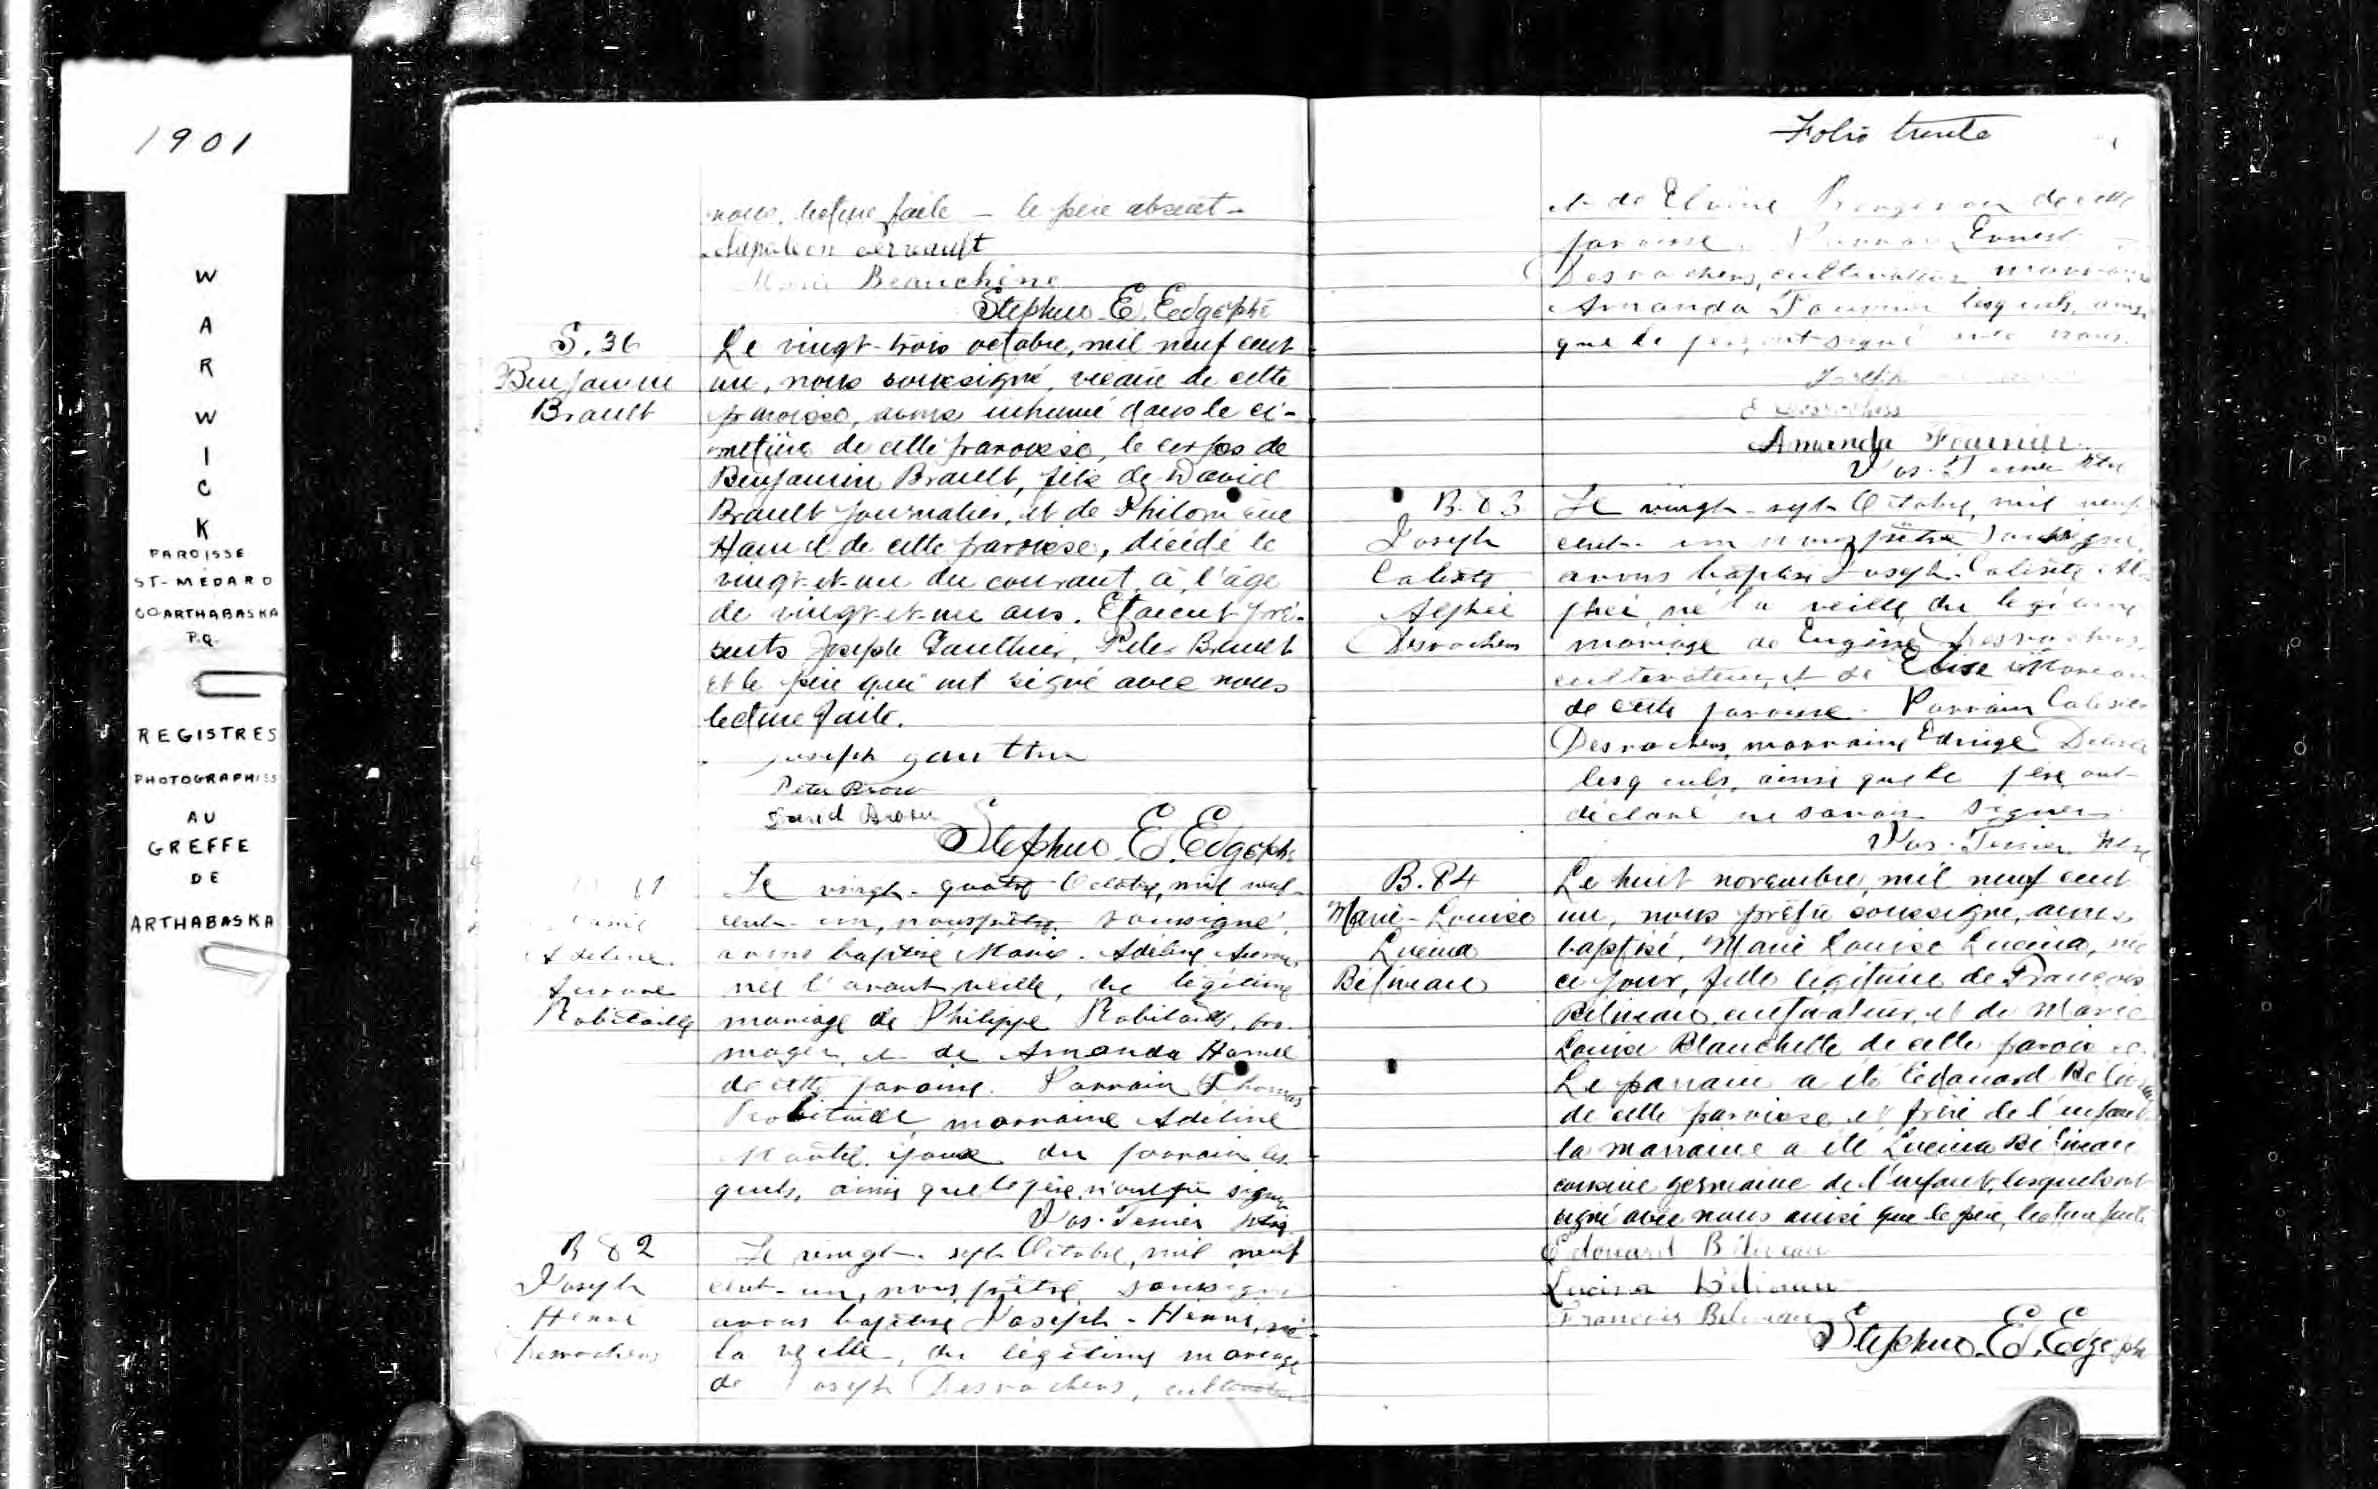 1901
WARWICK
PAROISSE
ST-MÉDARD
CO ARTHABASKA
P.Q.
REGISTRES
PHOTOGRAPHIÉS
AU
GREFFE
DE
ARTHABASKA
nous, lecture faite – le père absent –
Beauchêne
Stephus E. Edgephé
S. 36
Benjamin
Brault
Le vingt-trois octobre, mil neuf cent
un, nous soussigné, vicaire de cette
paroisse, avons inhumé dans le ci-
metière de cette paroisse, le corps de
Benjamin Brault, fils de David
Brault journalier, et de Philomène
Hamel de cette paroisse, décédé le
vingt-et-un du courant, à l'âge
de vingt-et-un ans. Étaient pré-
sents Joseph Gauthier, Peter Brault
et le père qui ont signé avec nous
lecture faite.
Joseph gauthier
Peter Brow
David Brow
Stephus E. Edgeph
Adeline
Robitaille
Le vingt-quatre Octobre, mil neuf
cent-un, nous prêtre soussigné,
avons baptisé Marie-Adéline
née l'avant veille, du légitime
mariage de Philippe Robitaille, fro-
mager, et de Amanda Hamel
de cette paroisse. Parrain Thomas
Robitaille, marraine Adéline
du parrain les-
quels, ainsi que le père, n'ont pu signer
Vas. Tessier ptre
B 82
Joseph
Henri
Desrochers
Le vingt-sept Octobre, mil neuf
cent-un, nous prêtre soussigné
avons baptisé Joseph-Henri, né
la veille, du légitime mariage
de Joseph Desrochers, cultivateur
Folio trente
et de Elvine Bergeron de cette
paroisse. Parrain Ernest
Desrochers, cultivateur, marraine
Amanda Fournier lesquels, ainsi
que le père, ont signé avec nous.
Joseph
E Desrochers
Amanda Fournier
Vas. Tessier ptre
B. 83
Joseph
Calixte
Alphée
Desrochers
Le vingt-sept Octobre, mil neuf
cent-un nous prêtre soussigné,
avons baptisé Joseph-Calixte Al-
phée, né la veille, du légitime
mariage de Eugène Desrochers,
cultivateur, et de Elise Moreau
de cette paroisse. Parrain Calixte
Desrochers, marraine Edwige
lesquels, ainsi que le père, ont
déclaré ne savoir signer.
Vas. Tessier ptre
B. 84
Marie-Louise
Lucina
Béliveau
Le huit novembre, mil neuf cent
un, nous prêtre soussigné, avons
baptisé, Marie Louise Lucina, née
ce jour, fille légitime de François
Béliveau, cultivateur, et de Marie
Louise Blanchette de cette paroisse.
Le parrain a été Edouard Béliveau
de cette paroisse et frère de l'enfant
la marraine a été Lucina Béliveau
cousine germaine de l'enfant, lesquels ont
signé avec nous ainsi que le père, lecture faite
Edouard Béliveau
Lucina Béliveau
François Beliveau
Stephus E. Edgephé